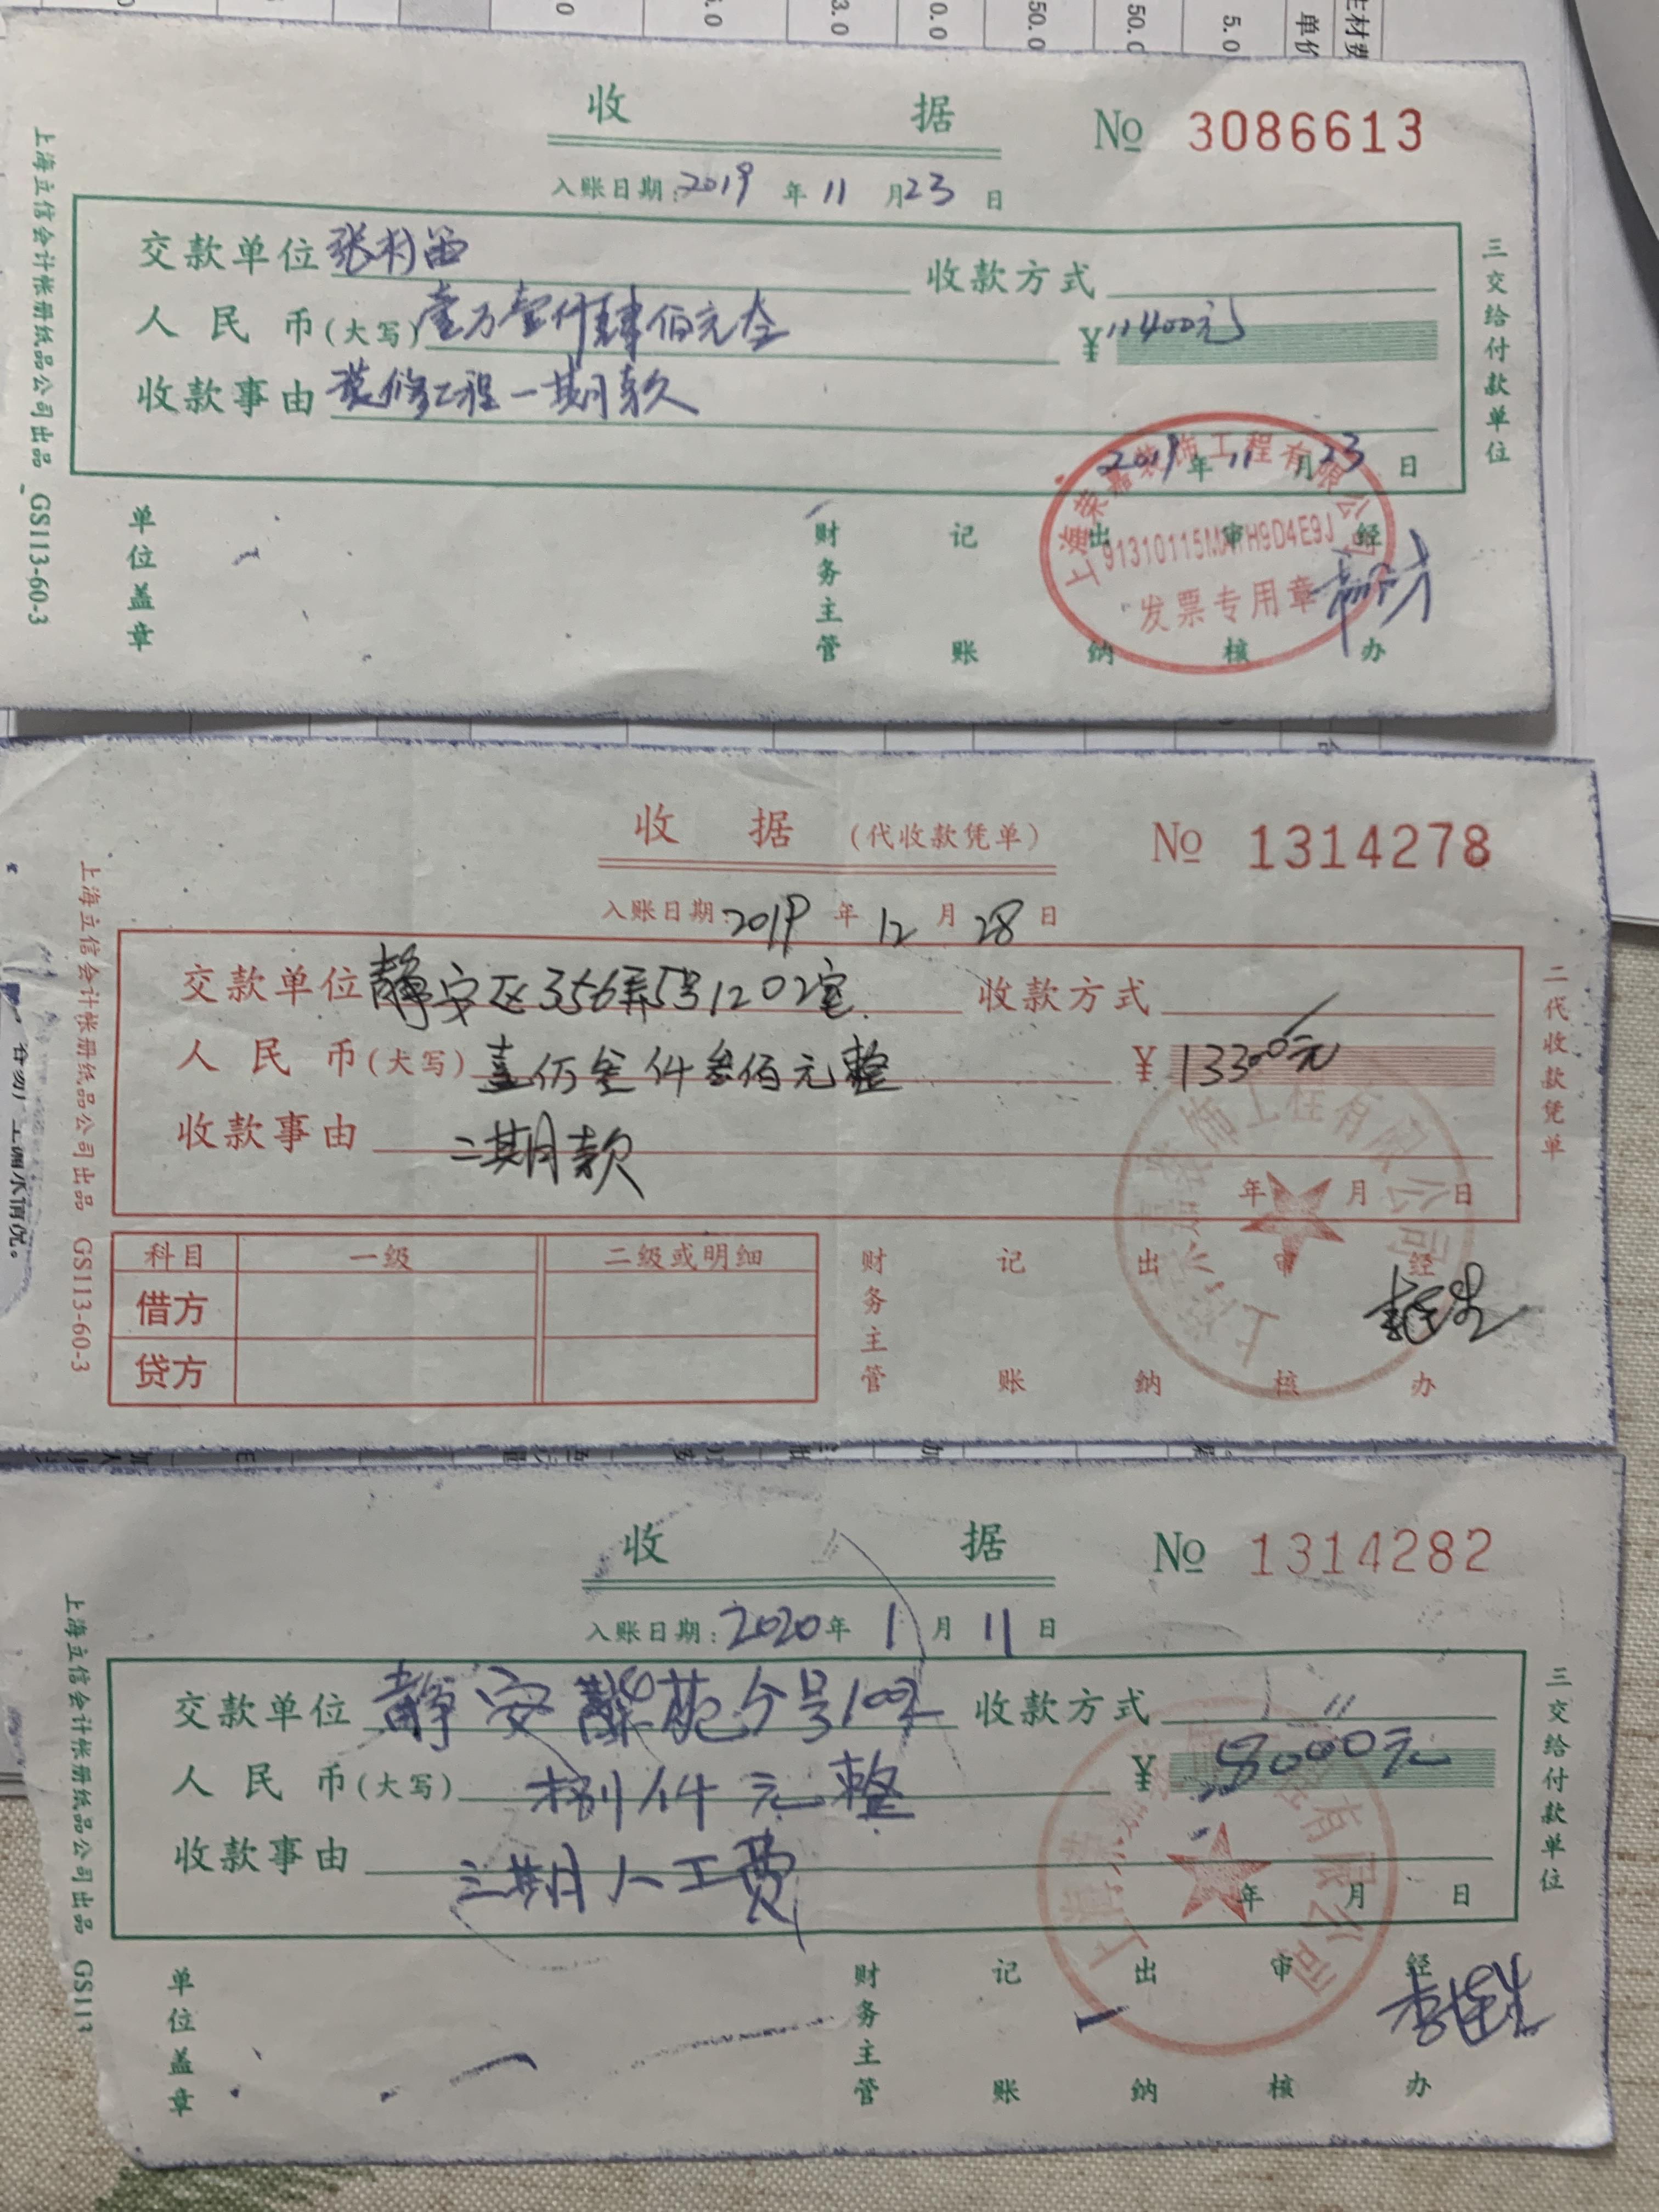 单价
5.0
50.0
50.0
0.0
3.0
收 据
No 3086613
入账日期:2019年11月23日
交款单位
收款方式
人民币(大写)壹万壹仟肆佰元全
¥11400元
收款事由 装修工程一期款
2019年11月23日
上海荣嘉装饰工程有限公司
发票专用章
单位盖章
财务主管 记账 出纳 审核 经办
三交给付款单位
上海立信会计帐册纸品公司出品 GS113-60-3
收 据 (代收款凭单)
No 1314278
入账日期:2019年12月28日
交款单位 静安区356弄5号1202室
收款方式
人民币(大写)壹仟叁佰元整
¥13300元
收款事由 二期款
年 月 日
科目 一级 二级或明细
借方
贷方
财务主管 记账 出纳 审核 经办
二代收款凭单
上海立信会计帐册纸品公司出品 GS113-60-3
收 据
No 1314282
入账日期:2020年1月11日
交款单位 静安
收款方式
人民币(大写) 捌仟元整
¥8000元
收款事由 三期人工费
年 月 日
单位盖章
财务主管 记账 出纳 审核 经办
三交给付款单位
上海立信会计帐册纸品公司出品 GS113